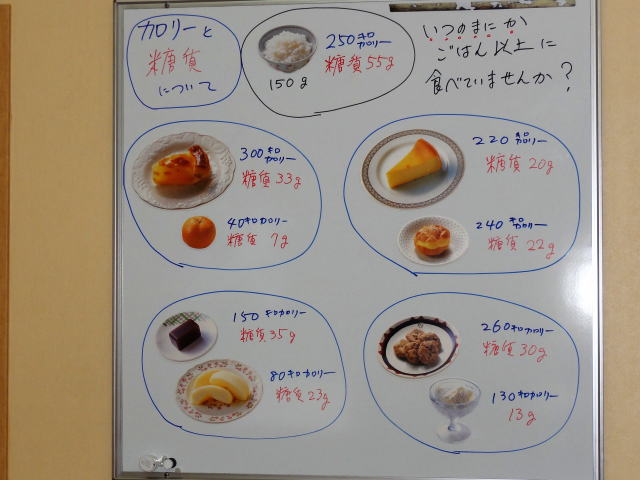 カロリーと
糖質
について
250キロカロリー
糖質55g
150g
いつのまにか
ごはん以上に
食べていませんか?
300キロカロリー
糖質33g
40キロカロリー
糖質7g
220キロカロリー
糖質20g
240キロカロリー
糖質22g
150キロカロリー
糖質35g
80キロカロリー
糖質23g
260キロカロリー
糖質30g
130キロカロリー
13g